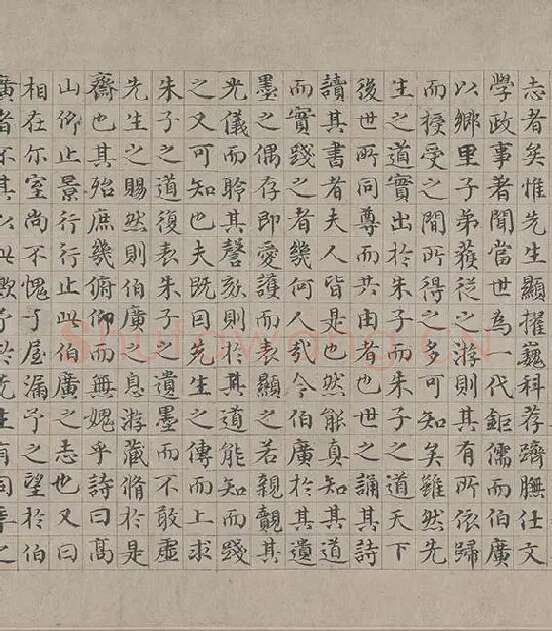 志者矣惟先生顯擢巍科荐躋膴仕文
學政事者聞當世為一代鉅儒而伯廣
以鄉里子弟獲從之游則其有所依歸
而授受之間所得之多可知矣雖然先
生之道實出於朱子而朱子之道天下
後世所同尊而共由者也世之誦其詩
讀其書者夫人皆是也然能真知其道
而實踐之者幾何人哉今伯廣於其遺
墨之偶存即愛護而表顯之若親覿其
光儀而聆其謦欬則於其道能知而踐
之又可知也夫既囙先生之傳而上求
朱子之道復表朱子之遺墨而不敢虛
先生之賜然則伯廣之息游藏脩於是
齋也其殆庶幾俯仰而無媿乎詩曰高
山仰止景行行止此伯廣之志也又曰
相在尔室尚不愧于屋漏予之望於伯
廣者不其以此歟予於先生有同